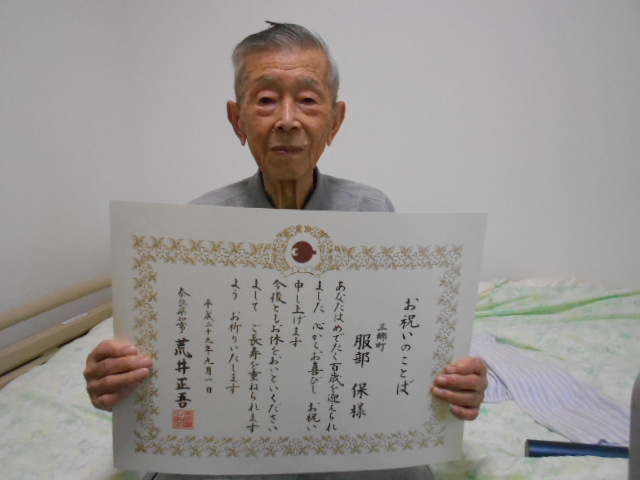 お祝いのことば
三郷町
服部 保様
あなたはめでたく百歳を迎えられ
ました 心からお喜びし お祝い
申し上げます
今後ともお体をおいといください
まして ご長寿を重ねられます
よう お祈りいたします
平成二十九年九月一日
奈良県知事 荒井正吾